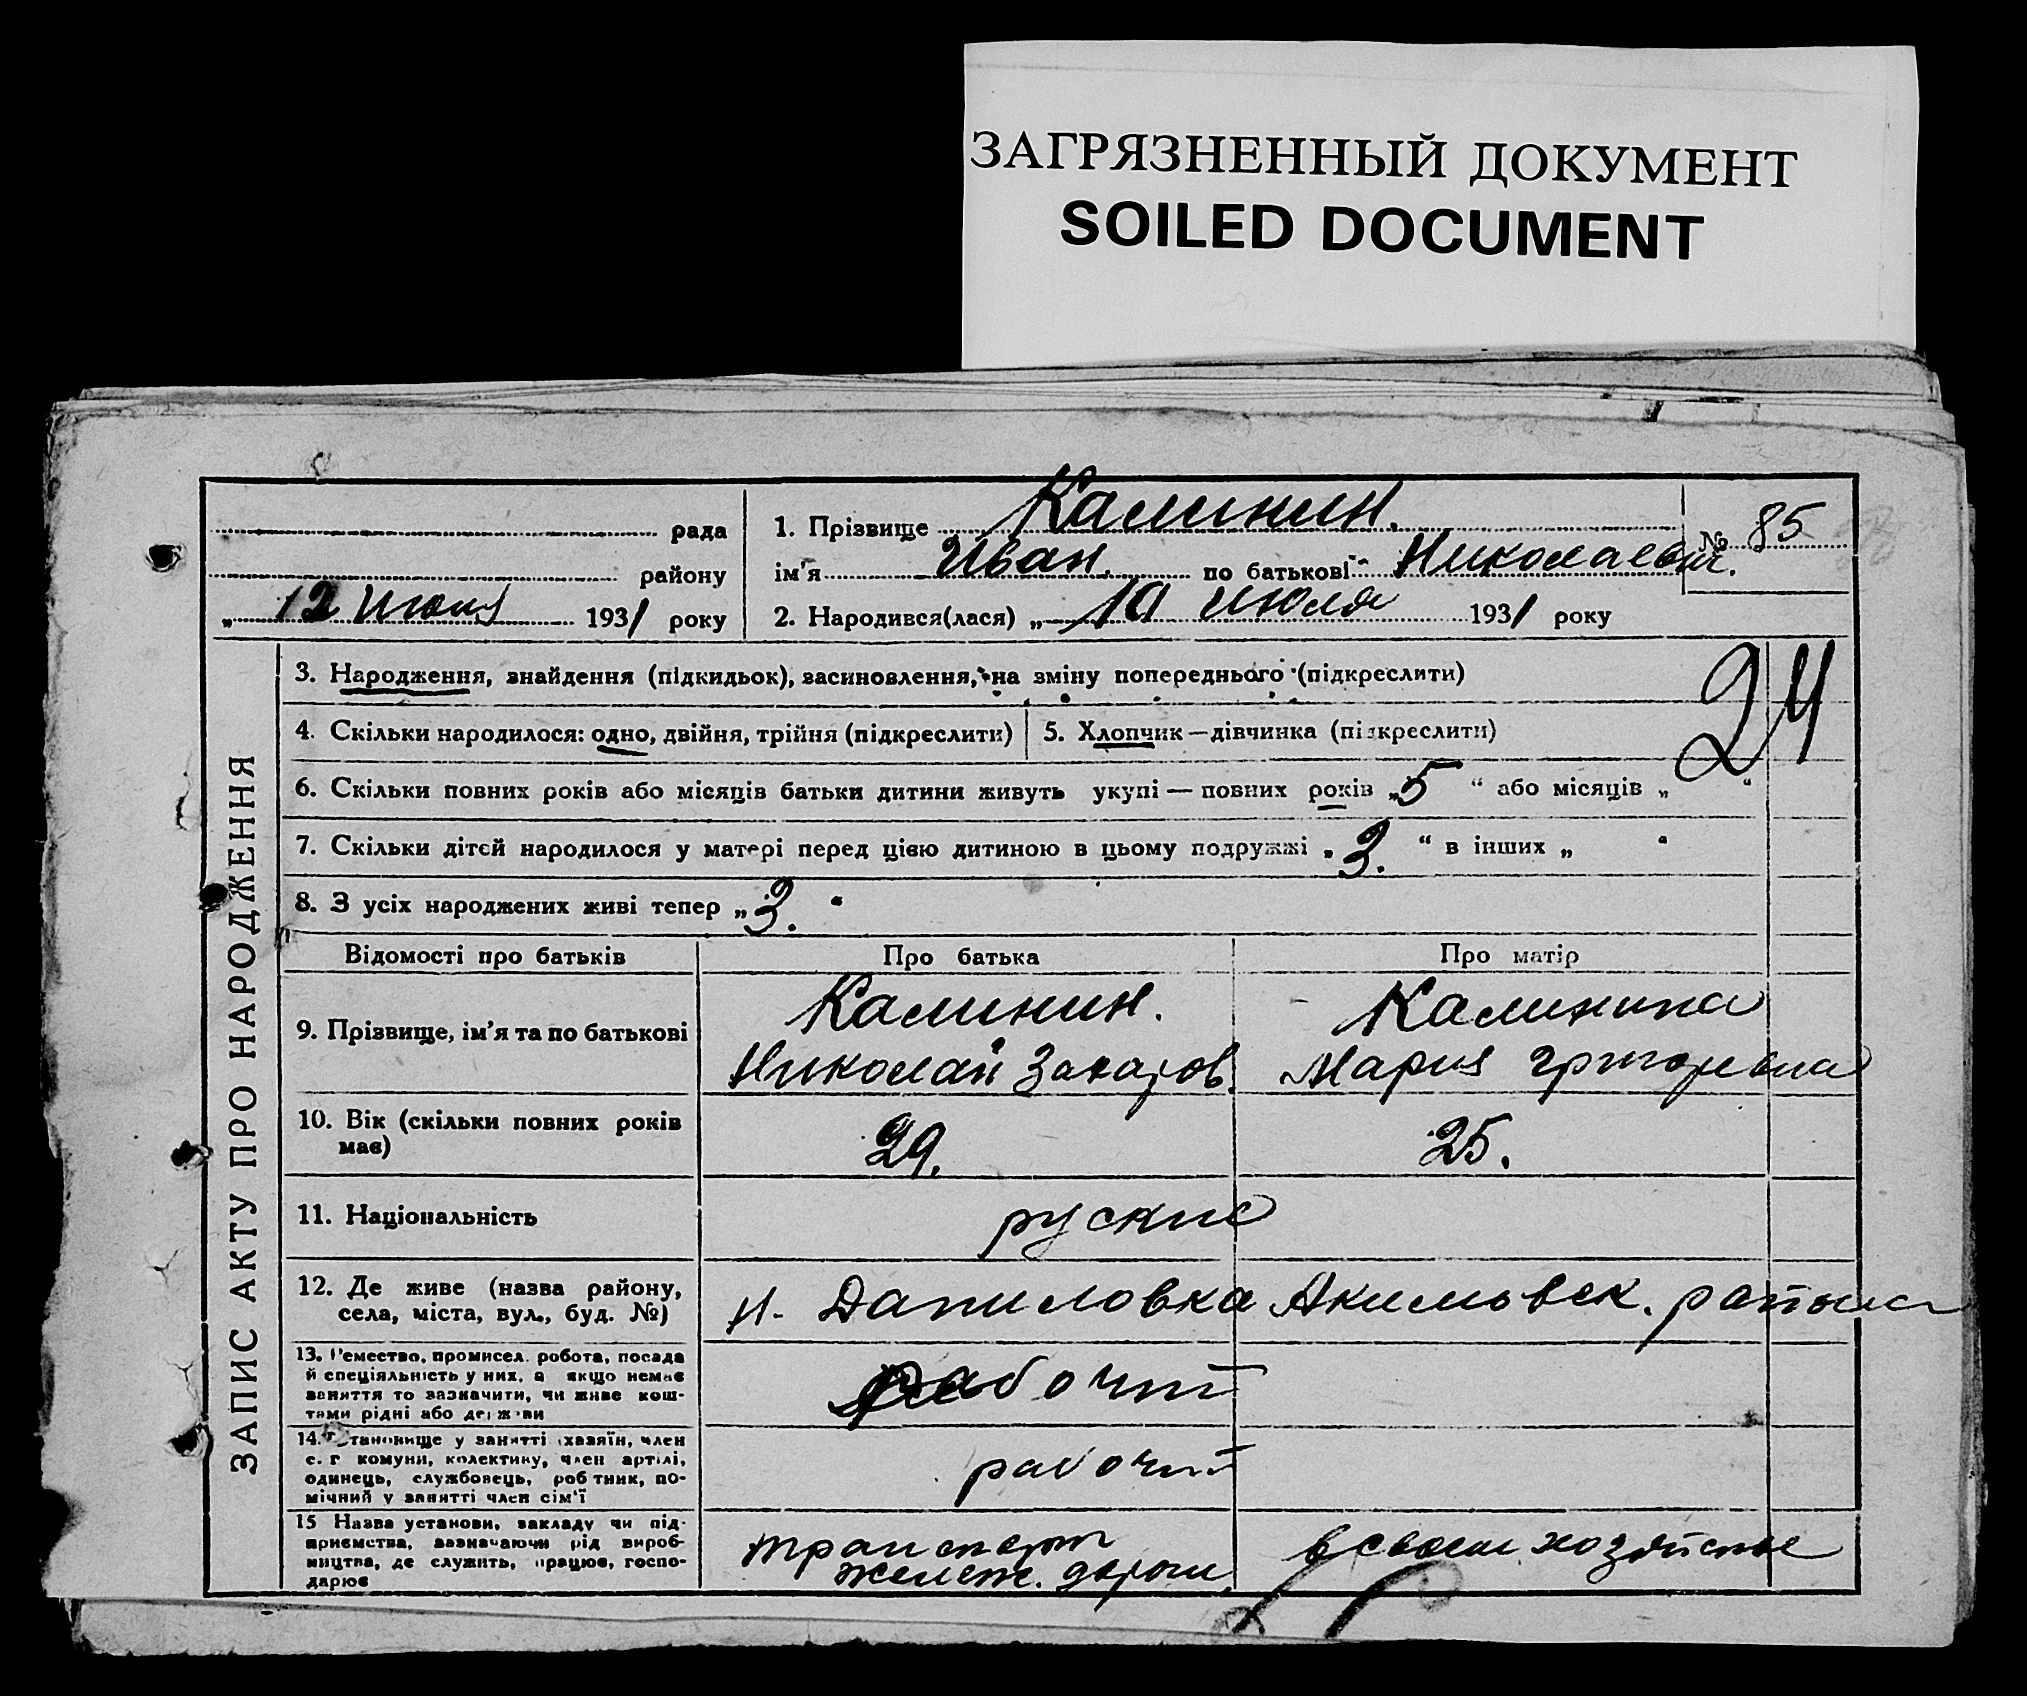 ЗАГРЯЗНЕННЫЙ ДОКУМЕНТ
SOILED DOCUMENT
ЗАПИС АКТУ ПРО НАРОДЖЕННЯ
рада
району
„12 Июля 1931 року
1. Прізвище Калинин.
ім'я Иван. по батькові Николаевич.
№ 85
2. Народився(лася) „10 июля 1931 року
3. Народження, знайдення (підкидьок), засиновлення, на зміну попереднього (підкреслити)
24
4. Скільки народилося: одно, двійня, трійня (підкреслити)
5. Хлопчик—дівчинка (підкреслити)
6. Скільки повних років або місяців батьки дитини живуть укупі — повних років „5“ або місяців „ “
7. Скільки дітей народилося у матері перед цією дитиною в цьому подружжі „3.“ в інших „ “
8. З усіх народжених живі тепер „3.“
Відомості про батьків
Про батька
Про матір
9. Прізвище, ім'я та по батькові
Калинин.
Николай Захаров.
Калинина
Мария Григоревна
10. Вік (скільки повних років
має)
29.
25.
11. Національність
руские
12. Де живе (назва району,
села, міста, вул., буд. №)
Даниловка Акимовск. района
13. Ремество, промисел, робота, посада
й спеціяльність у них, а якщо немає
заняття то зазначити, чи живе кош-
тами рідні або держави
рабочий
14. Становище у занятті (хазяїн, член
с. г комуни, колективу, член артілі,
одинець, службовець, робітник, по-
мічний у занятті член сім'ї
рабочий
15 Назва установи, закладу чи під-
приємства, зазначаючи рід вироб-
ництва, де служить, працює, госпо-
дарює
транспорт
желез. дороги
в своем хозяйстве